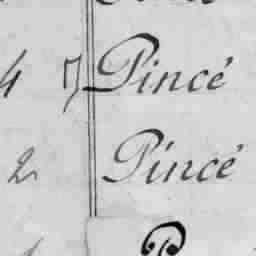 4 Pincé
2 Pincé